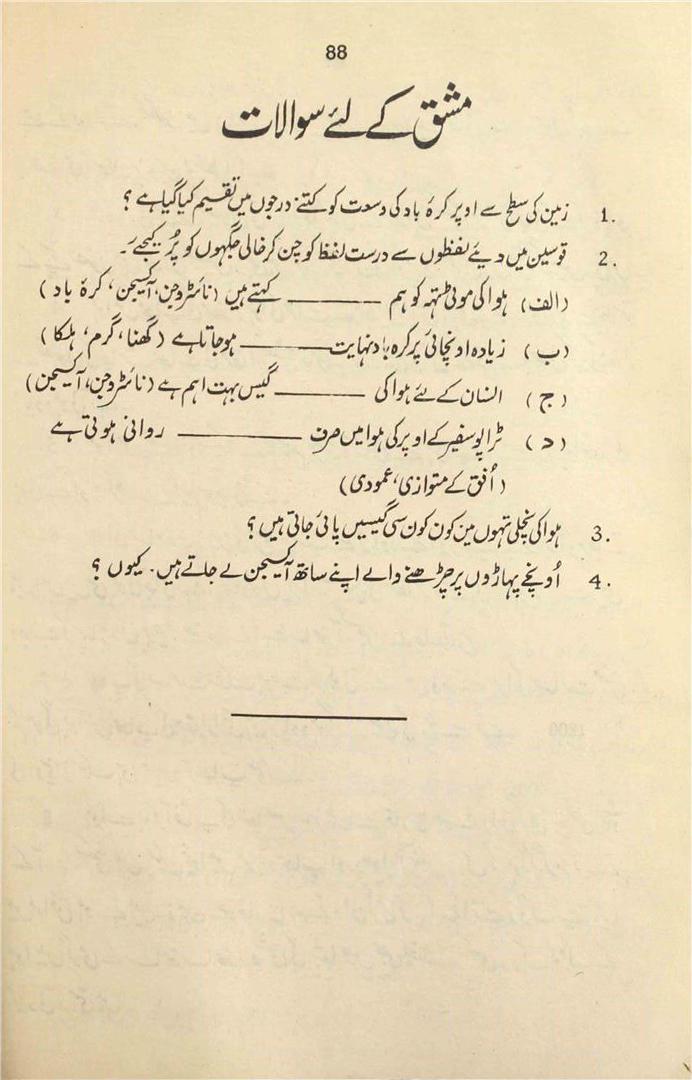 88
مشق کے لئے سوالات
1. زمین کی سطح سے اوپر کرۂ باد کی وسعت کو کتنے درجوں میں تقسیم کیا گیا ہے؟
2. قوسین میں دیئے لفظوں سے درست لفظ کو چن کر خالی جگہوں کو پُر کیجیے۔
(الف) ہوا کی موٹی تہہ کو ہم ________ کہتے ہیں (نائٹروجن، آکسیجن، کرۂ باد)
(ب) زیادہ اونچائی پر کرہ باد نہایت ________ ہو جاتا ہے (گھنا، گرم، ہلکا)
(ج) انسان کے لئے ہوا کی ________ گیس بہت اہم ہے (نائٹروجن، آکسیجن)
(د) ٹراپوسفیر کے اوپر کی ہوا میں صرف ________ روانی ہوتی ہے
(اُفق کے متوازی، عمودی)
3. ہوا کی نچلی تہوں میں کون کون سی گیسیں پائی جاتی ہیں؟
4. اُونچے پہاڑوں پر چڑھنے والے اپنے ساتھ آکسیجن لے جاتے ہیں۔ کیوں؟